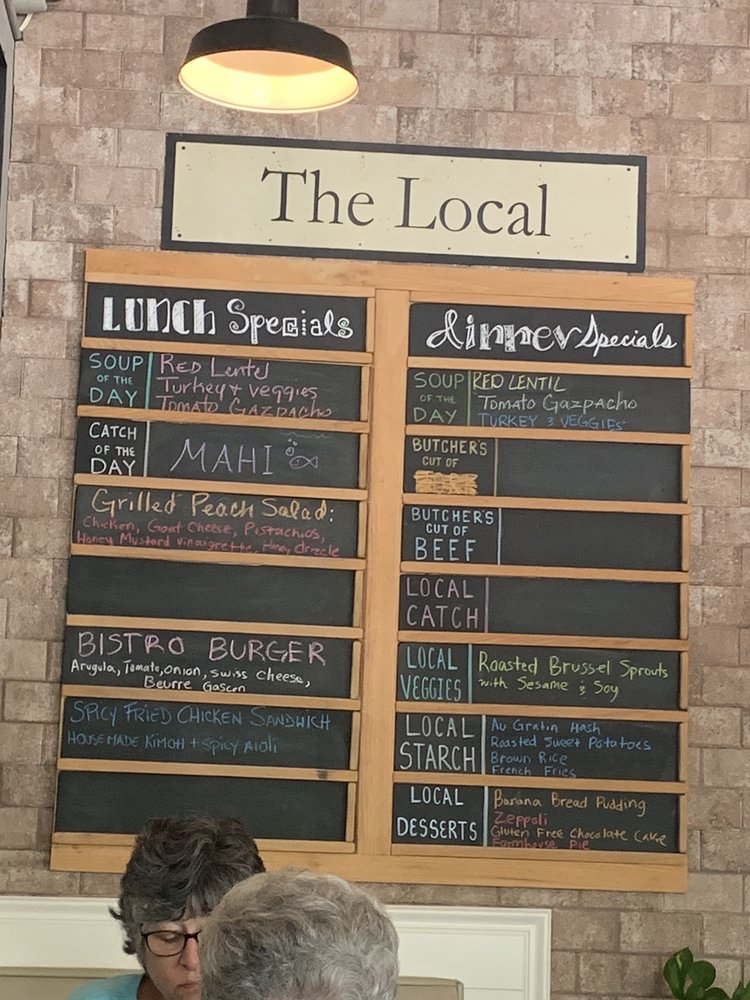 The Local
LUNCH Specials
SOUP
OF THE
DAY
RED Lentel
Turkey + veggies
Tomato GAZPACHO
CATCH
OF THE
DAY
MAHI
Grilled Peach Salad:
Chicken, Goat Cheese, Pistachios,
Honey Mustard Vinaigrette, Honey drizzle
BISTRO BURGER
Arugula, Tomato, onion, swiss cheese,
Beurre Gascon
SPICY FRIED CHICKEN SANDWICH
HOUSEMADE KIMCHI + SPICY AIOLI
dinner Specials
SOUP
OF THE
DAY
RED LENTIL
Tomato GAZPACHO
TURKEY & VEGGIES
BUTCHER'S
CUT OF
BUTCHER'S
CUT OF
BEEF
LOCAL
CATCH
LOCAL
VEGGIES
Roasted Brussel Sprouts
with Sesame & Soy
LOCAL
STARCH
Au Gratin Hash
Roasted Sweet Potatoes
Brown Rice
French Fries
LOCAL
DESSERTS
Banana Bread Pudding
Zeppoli
Gluten Free Chocolate Cake
Farmhouse Pie